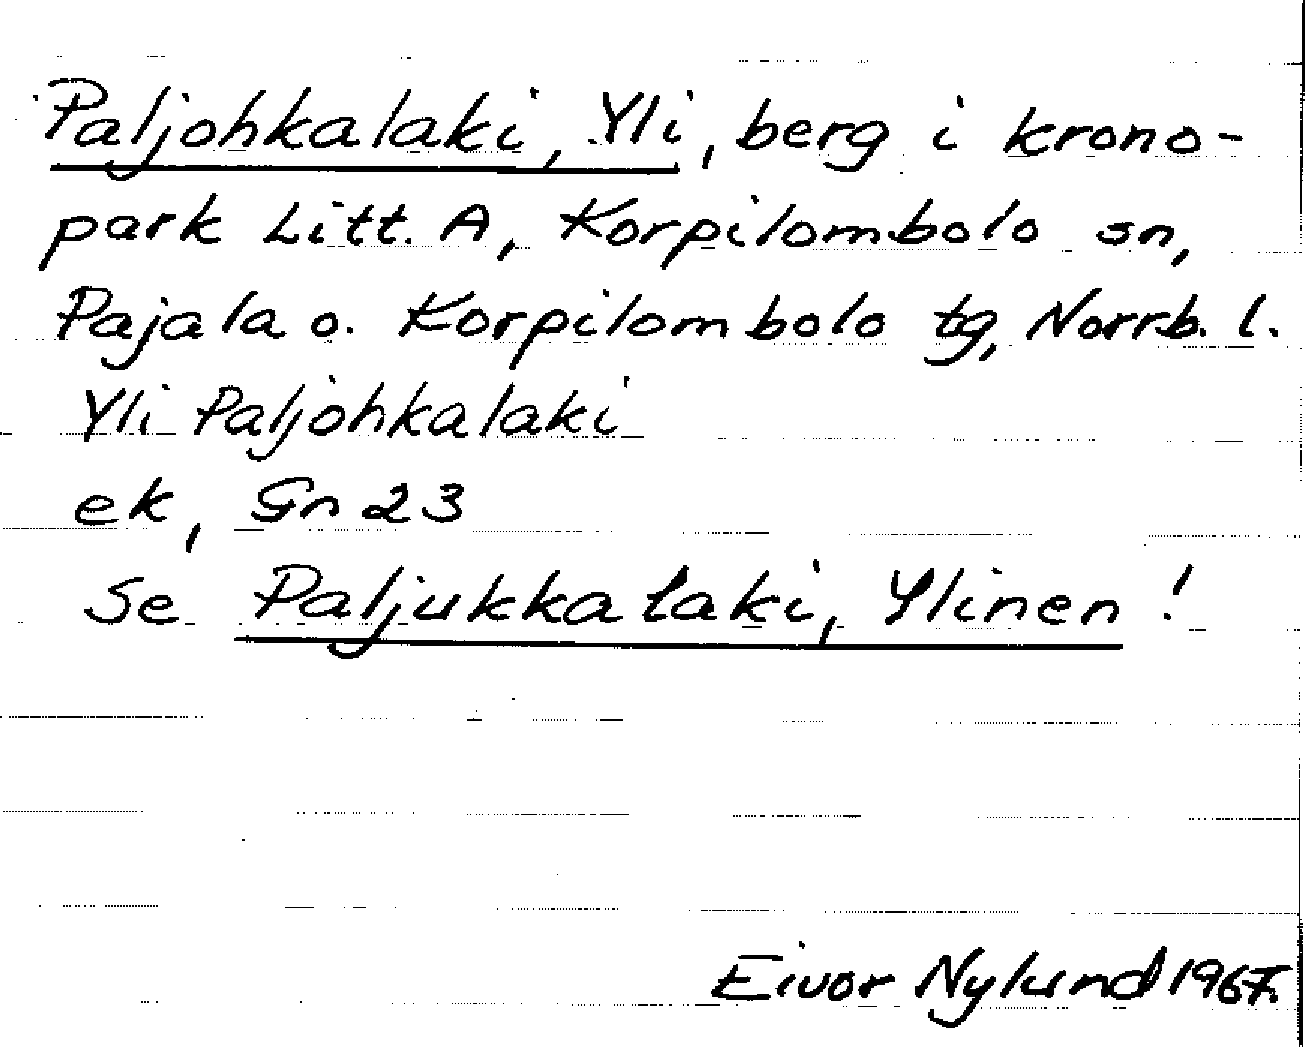 Paljohkalaki, Yli, berg i krono-
park Litt. A, Korpilombolo sn,
Pajala o. Korpilombolo tg, Norrb. l.
Yli Paljohkalaki
ek, Gn 23
Se Paljukkalaki, Ylinen!
Eivor Nylund 1967.